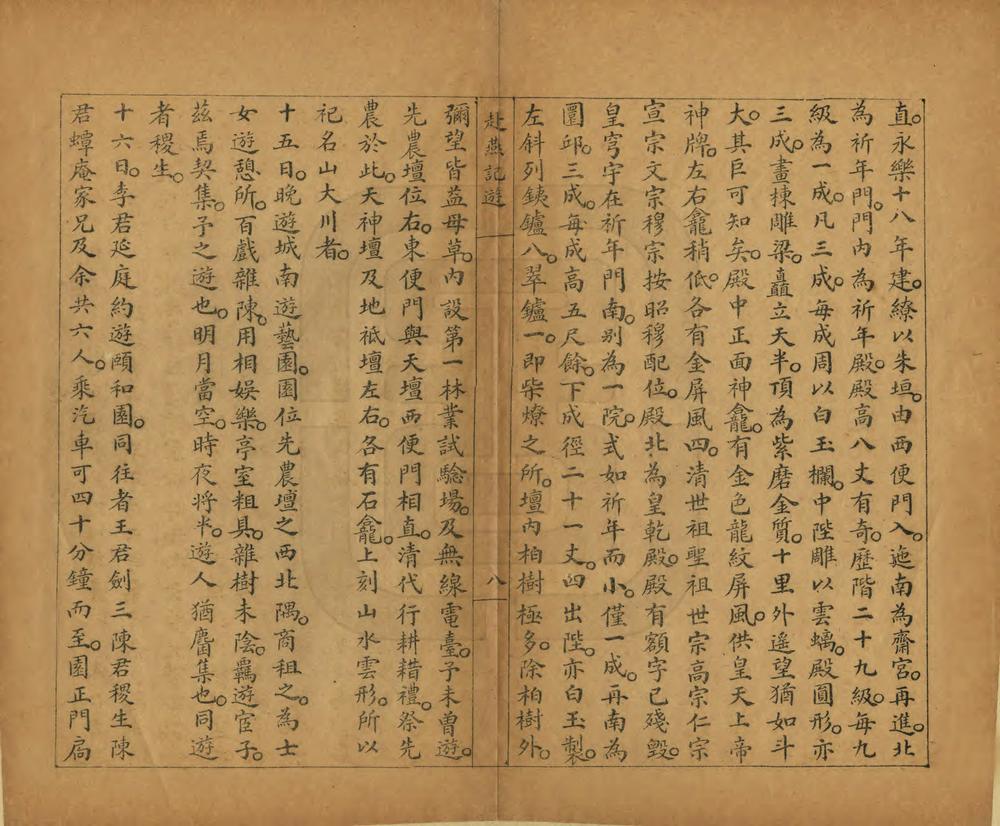 直。永樂十八年建。繚以朱垣。由西便門入。迤南為齋宮。再進。北
為祈年門。門內為祈年殿。殿高八丈有奇。歷階二十九級。每九
級為一成。凡三成。每成周以白玉欄。中陛雕以雲螭。殿圓形。亦
三成。畫棟雕梁。矗立天半。頂為紫磨金質。十里外遙望猶如斗
大。其巨可知矣。殿中正面神龕。有金色龍紋屏風。供皇天上帝
神牌。左右龕稍低。各有金屏風四。清世祖聖祖世宗高宗仁宗
宣宗文宗穆宗按昭穆配位。殿北為皇乾殿。殿有額字已殘毀。
皇穹宇在祈年門南。別為一院。式如祈年而小。僅一成。再南為
圜邱。三成。每成高五尺餘。下成徑二十一丈。四出陛。亦白玉製。
左斜列銕鑪八。翠鑪一。即柴燎之所。壇內柏樹極多。除柏樹外。
赴燕記遊
八
彌望皆益母草。內設第一林業試驗場。及無線電臺。予未曾遊。
先農壇位右。東便門與天壇西便門相直。清代行耕耤禮。祭先
農於此。天神壇及地祇壇左右。各有石龕。上刻山水雲形。所以
祀名山大川者。
十五日。晚遊城南遊藝園。園位先農壇之西北隅。商租之。為士
女遊憩所。百戲雜陳。用相娛樂。亭室粗具。雜樹未陰。羈遊宦子。
茲焉契集。予之遊也。明月當空。時夜將半。遊人猶麕集也。同遊
者稷生。
十六日。李君延庭約遊頤和園。同往者王君劍三陳君稷生陳
君蟫庵家兄及余共六人。乘汽車可四十分鐘而至。園正門扃